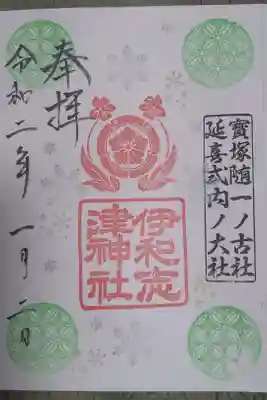 寳塚随一ノ古社
延喜式内ノ大社
奉拝
伊和志
津神社
令和二年一月二日